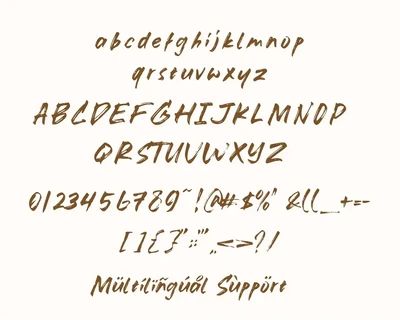 abcdefghijklmnop
qrstuvwxyz
ABCDEFGHIJKLMNOP
QRSTUVWXYZ
0123456789~!@#$%^&((_+=-
[]{}"::'",,<>?/
Mültilïñgúål Sùppört